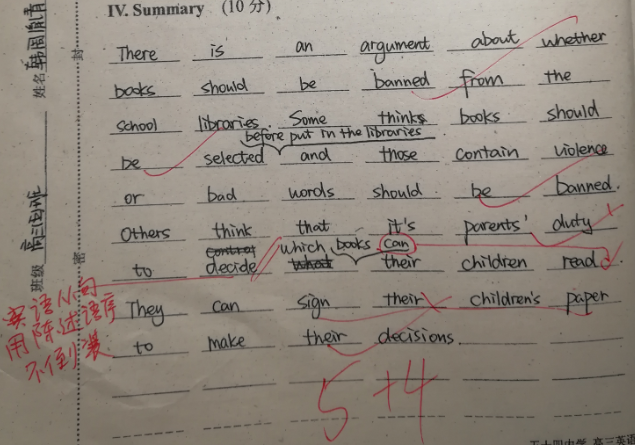 IV. Summary (10分)
There is an argument about whether
books should be banned from the
school libraries. Some thinks books should
before put in the libraries
be selected and those contain violence
or bad words should be banned.
Others think that it's parents' duty
to decide which books can their children read.
They can sign their children's paper
to make their decisions.
5+4
宾语从句
用陈述语序
不倒装
姓名
班级 高三四班
封
密